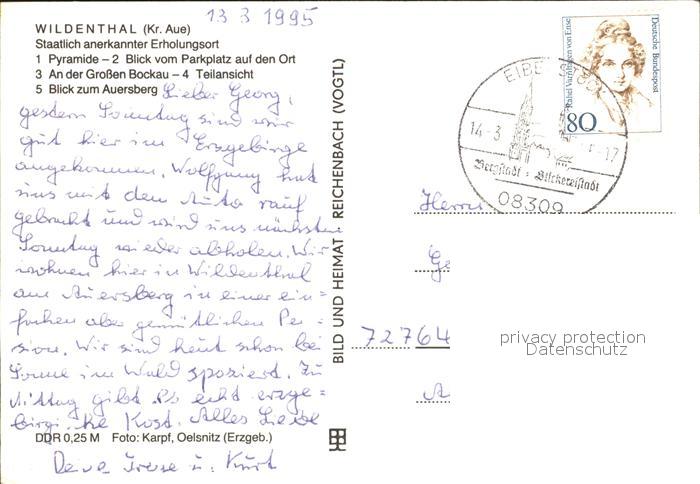 13 3 1995
WILDENTHAL (Kr. Aue)
Staatlich anerkannter Erholungsort
1 Pyramide – 2 Blick vom Parkplatz auf den Ort
3 An der Großen Bockau – 4 Teilansicht
5 Blick zum Auersberg
Lieber Georg,
gestern Sonntag sind wir
gut hier im Erzgebirge
angekommen. Wolfgang hat
uns mit dem Auto rauf
gebracht und wird uns nächsten
Sonntag wieder abholen. Wir
wohnen hier in Wildenthal
am Auersberg in einer ein=
fachen aber gemütlichen Pen=
sion. Wir sind heut schon bei
Sonne im Wald spaziert. Zu
Mittag gibt es echt erzge=
birgi.he Kost. Alles Liebe
DDR 0,25 M Foto: Karpf, Oelsnitz (Erzgeb.)
Deine Irene u. Kurt
BILD UND HEIMAT REICHENBACH (VOGTL)
Deutsche Bundespost
Rahel Varnhagen von Ense
80
EIBENSTOCK
14-3 -17
Bergstadt - Stickereistadt
08309
Herrn
Ge
72764
privacy protection
Datenschutz